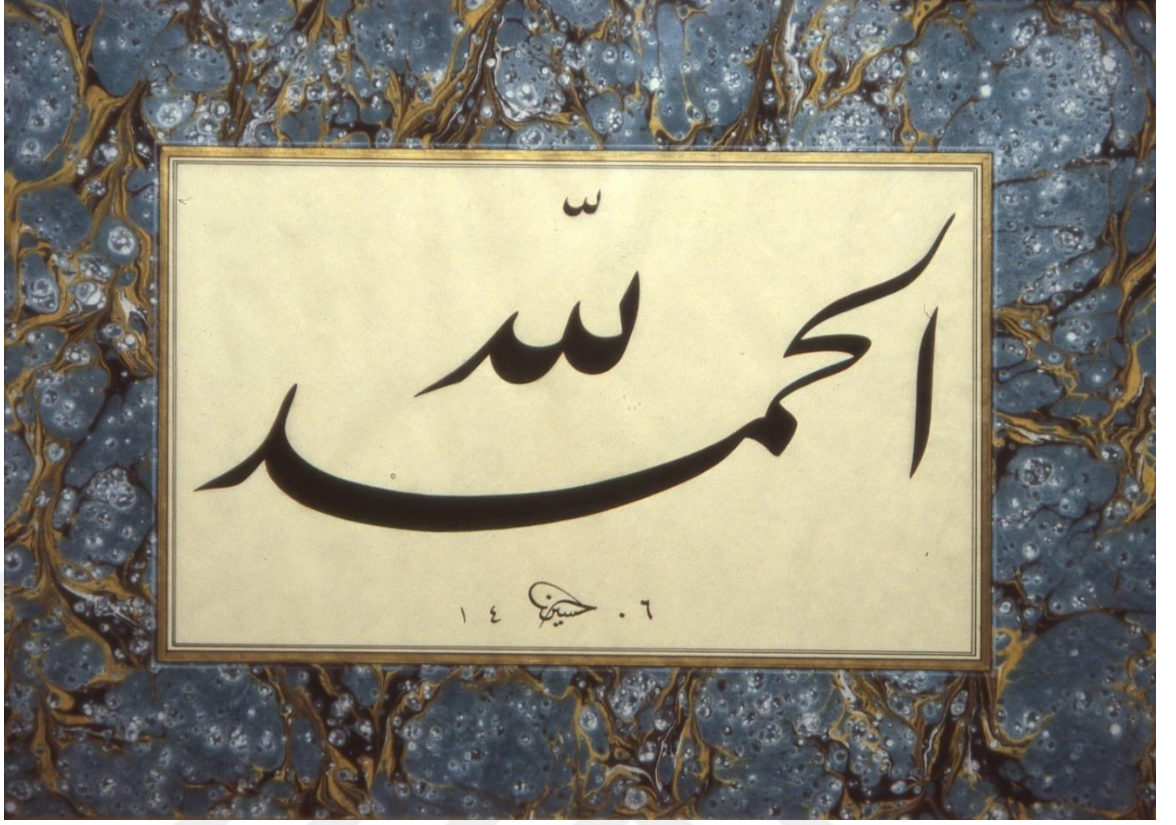 الحمد لله
١٤ حسين ٠٦